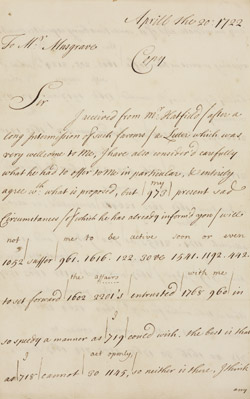 Aprill the 20th 1722
To Mr Musgrave
Copy
Sir
I recived from Mr Hatfeild (after a
long Intermission of such favours) a Letter which was
very wellcome to Me, I have also consider'd carefully
what he had to offer to Me in particular, & entirely
agree wth what is propos'd, but 973 present sad
my
Circumstance (of which he has already inform'd you) will
not me to be active soon or even
1052 suffer 961. 1616. 122. 30 1541. 1192. 442.
the affairs with me
to set forward 1602 2201's entrusted 1765 960 in
I
so speedy a manner as 719 could wish. the best is that
I act openly,
as 718 cannot 30 1145, so neither is there, I think
any